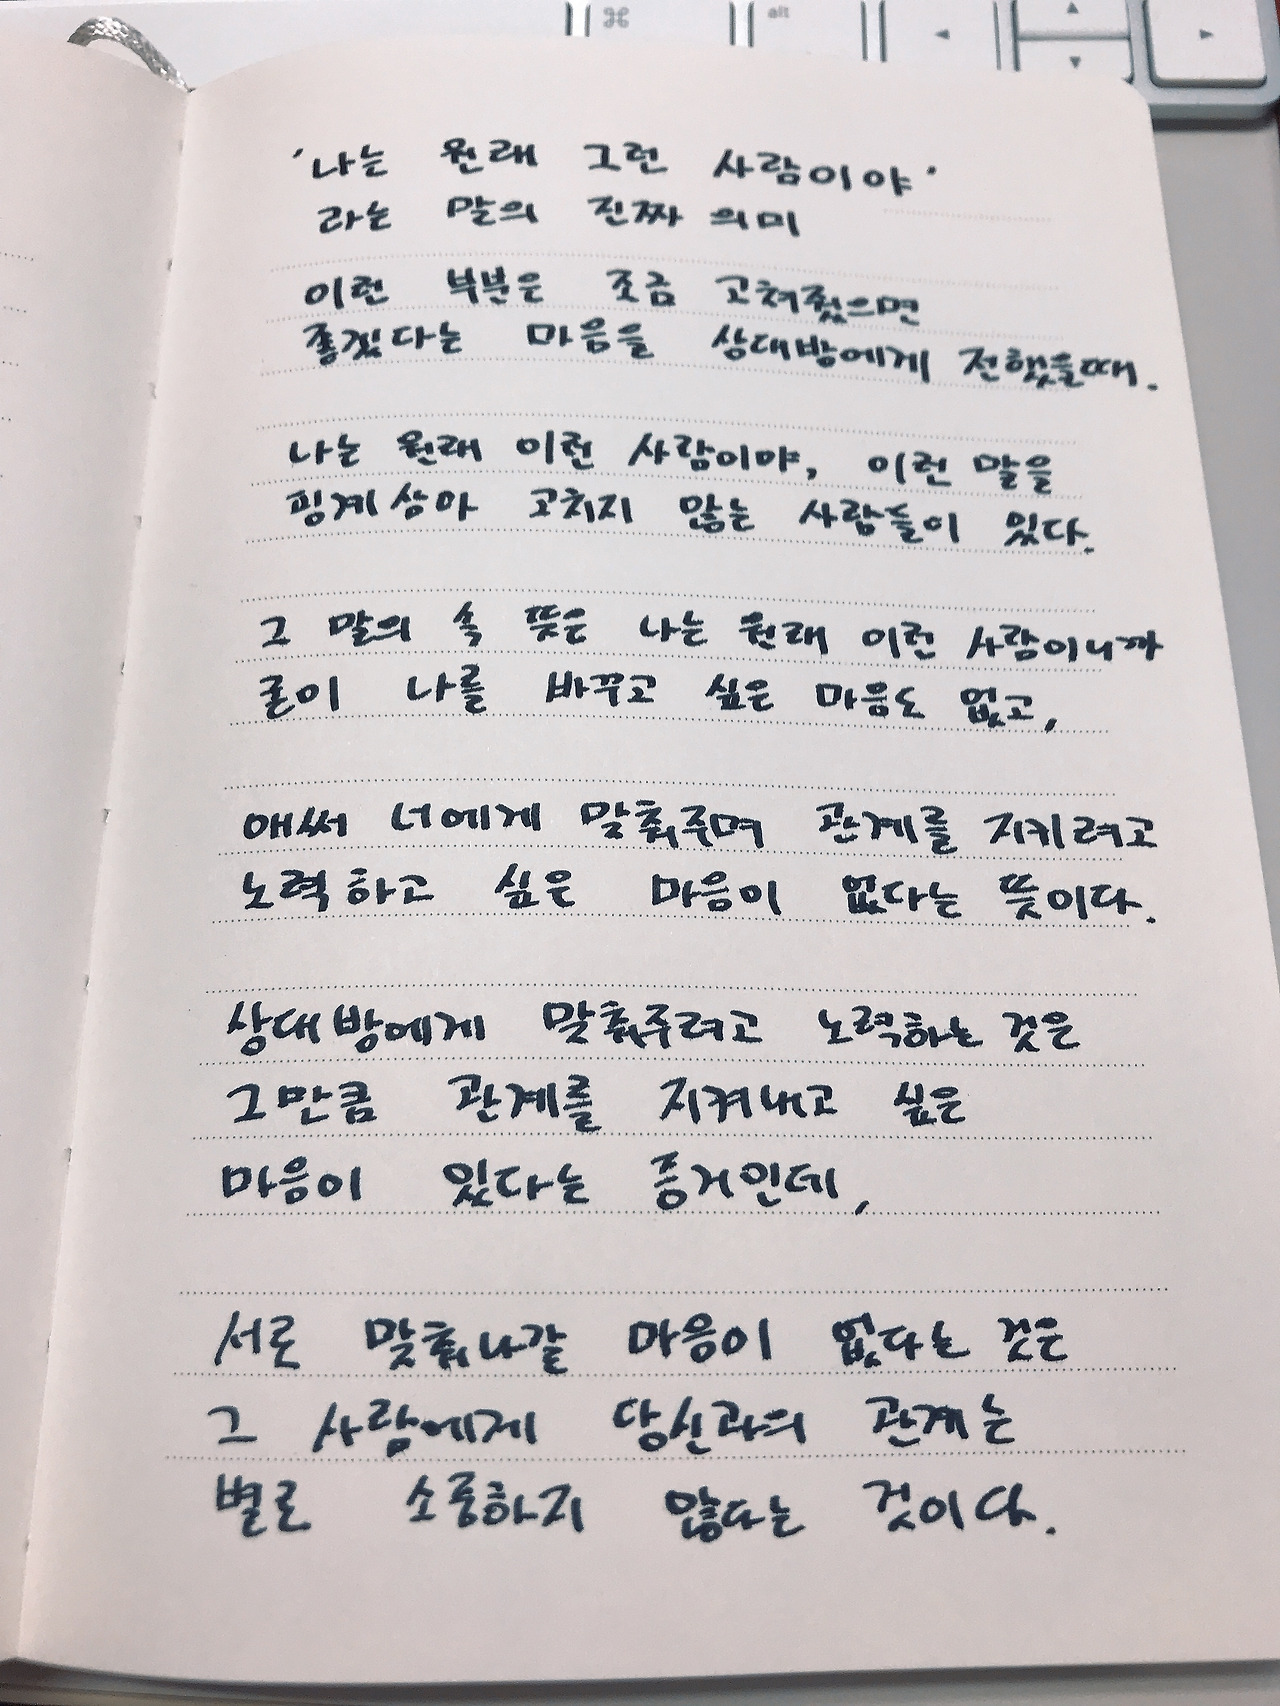 ⌘
alt
◀
▲
▼
▶
'나는 원래 그런 사람이야'
라는 말의 진짜 의미
이런 부분은 조금 고쳐줬으면
좋겠다는 마음을 상대방에게 전했을때.
나는 원래 이런 사람이야, 이런 말을
핑계삼아 고치지 않는 사람들이 있다.
그 말의 속 뜻은 나는 원래 이런 사람이니까
굳이 나를 바꾸고 싶은 마음도 없고,
애써 너에게 맞춰주며 관계를 지키려고
노력하고 싶은 마음이 없다는 뜻이다.
상대방에게 맞춰주려고 노력하는 것은
그만큼 관계를 지켜내고 싶은
마음이 있다는 증거인데,
서로 맞춰나갈 마음이 없다는 것은
그 사람에게 당신과의 관계는
별로 소중하지 않다는 것이다.